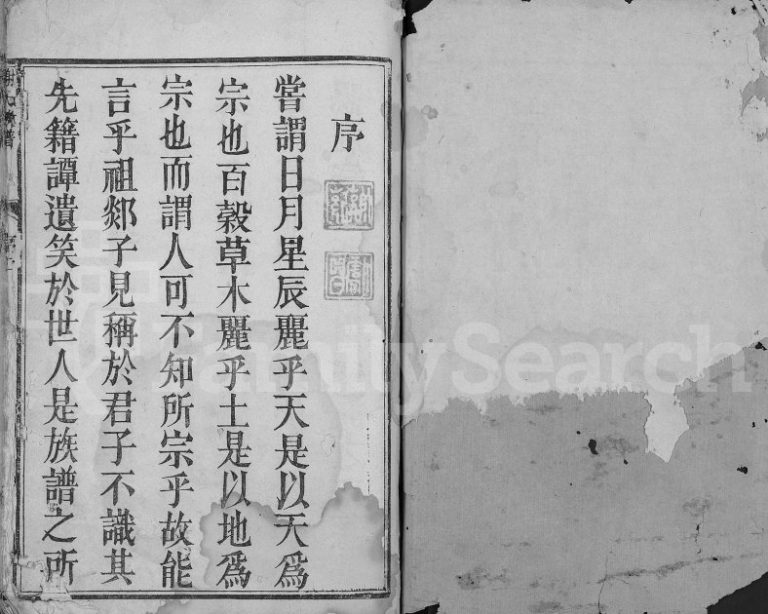 序
嘗謂日月星辰麗乎天是以天為
宗也百穀草木麗乎土是以地為
宗也而謂人可不知所宗乎故能
言乎祖郯子見稱於君子不識其
先籍譚遺笑於世人是族譜之所
FamilySearch